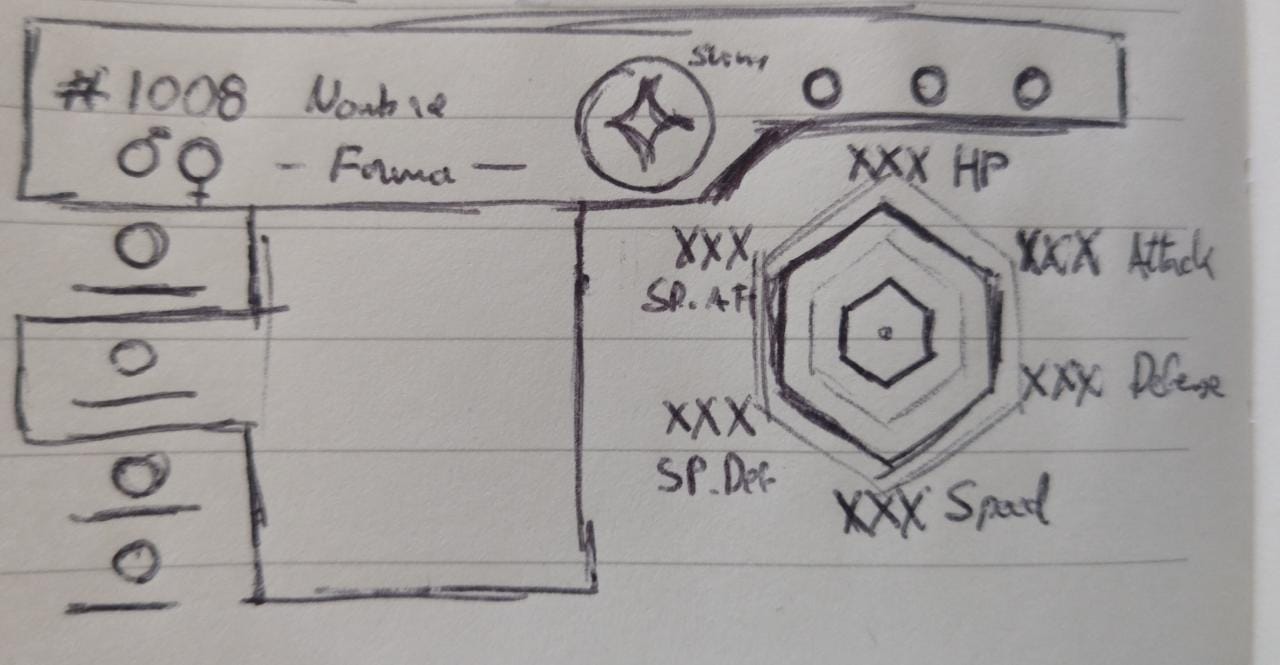 #1008 Nombre
♂♀ - Forma -
Shiny
XXX HP
XXX Attack
XXX Defense
XXX Speed
XXX
SP.Def
XXX
SP.At